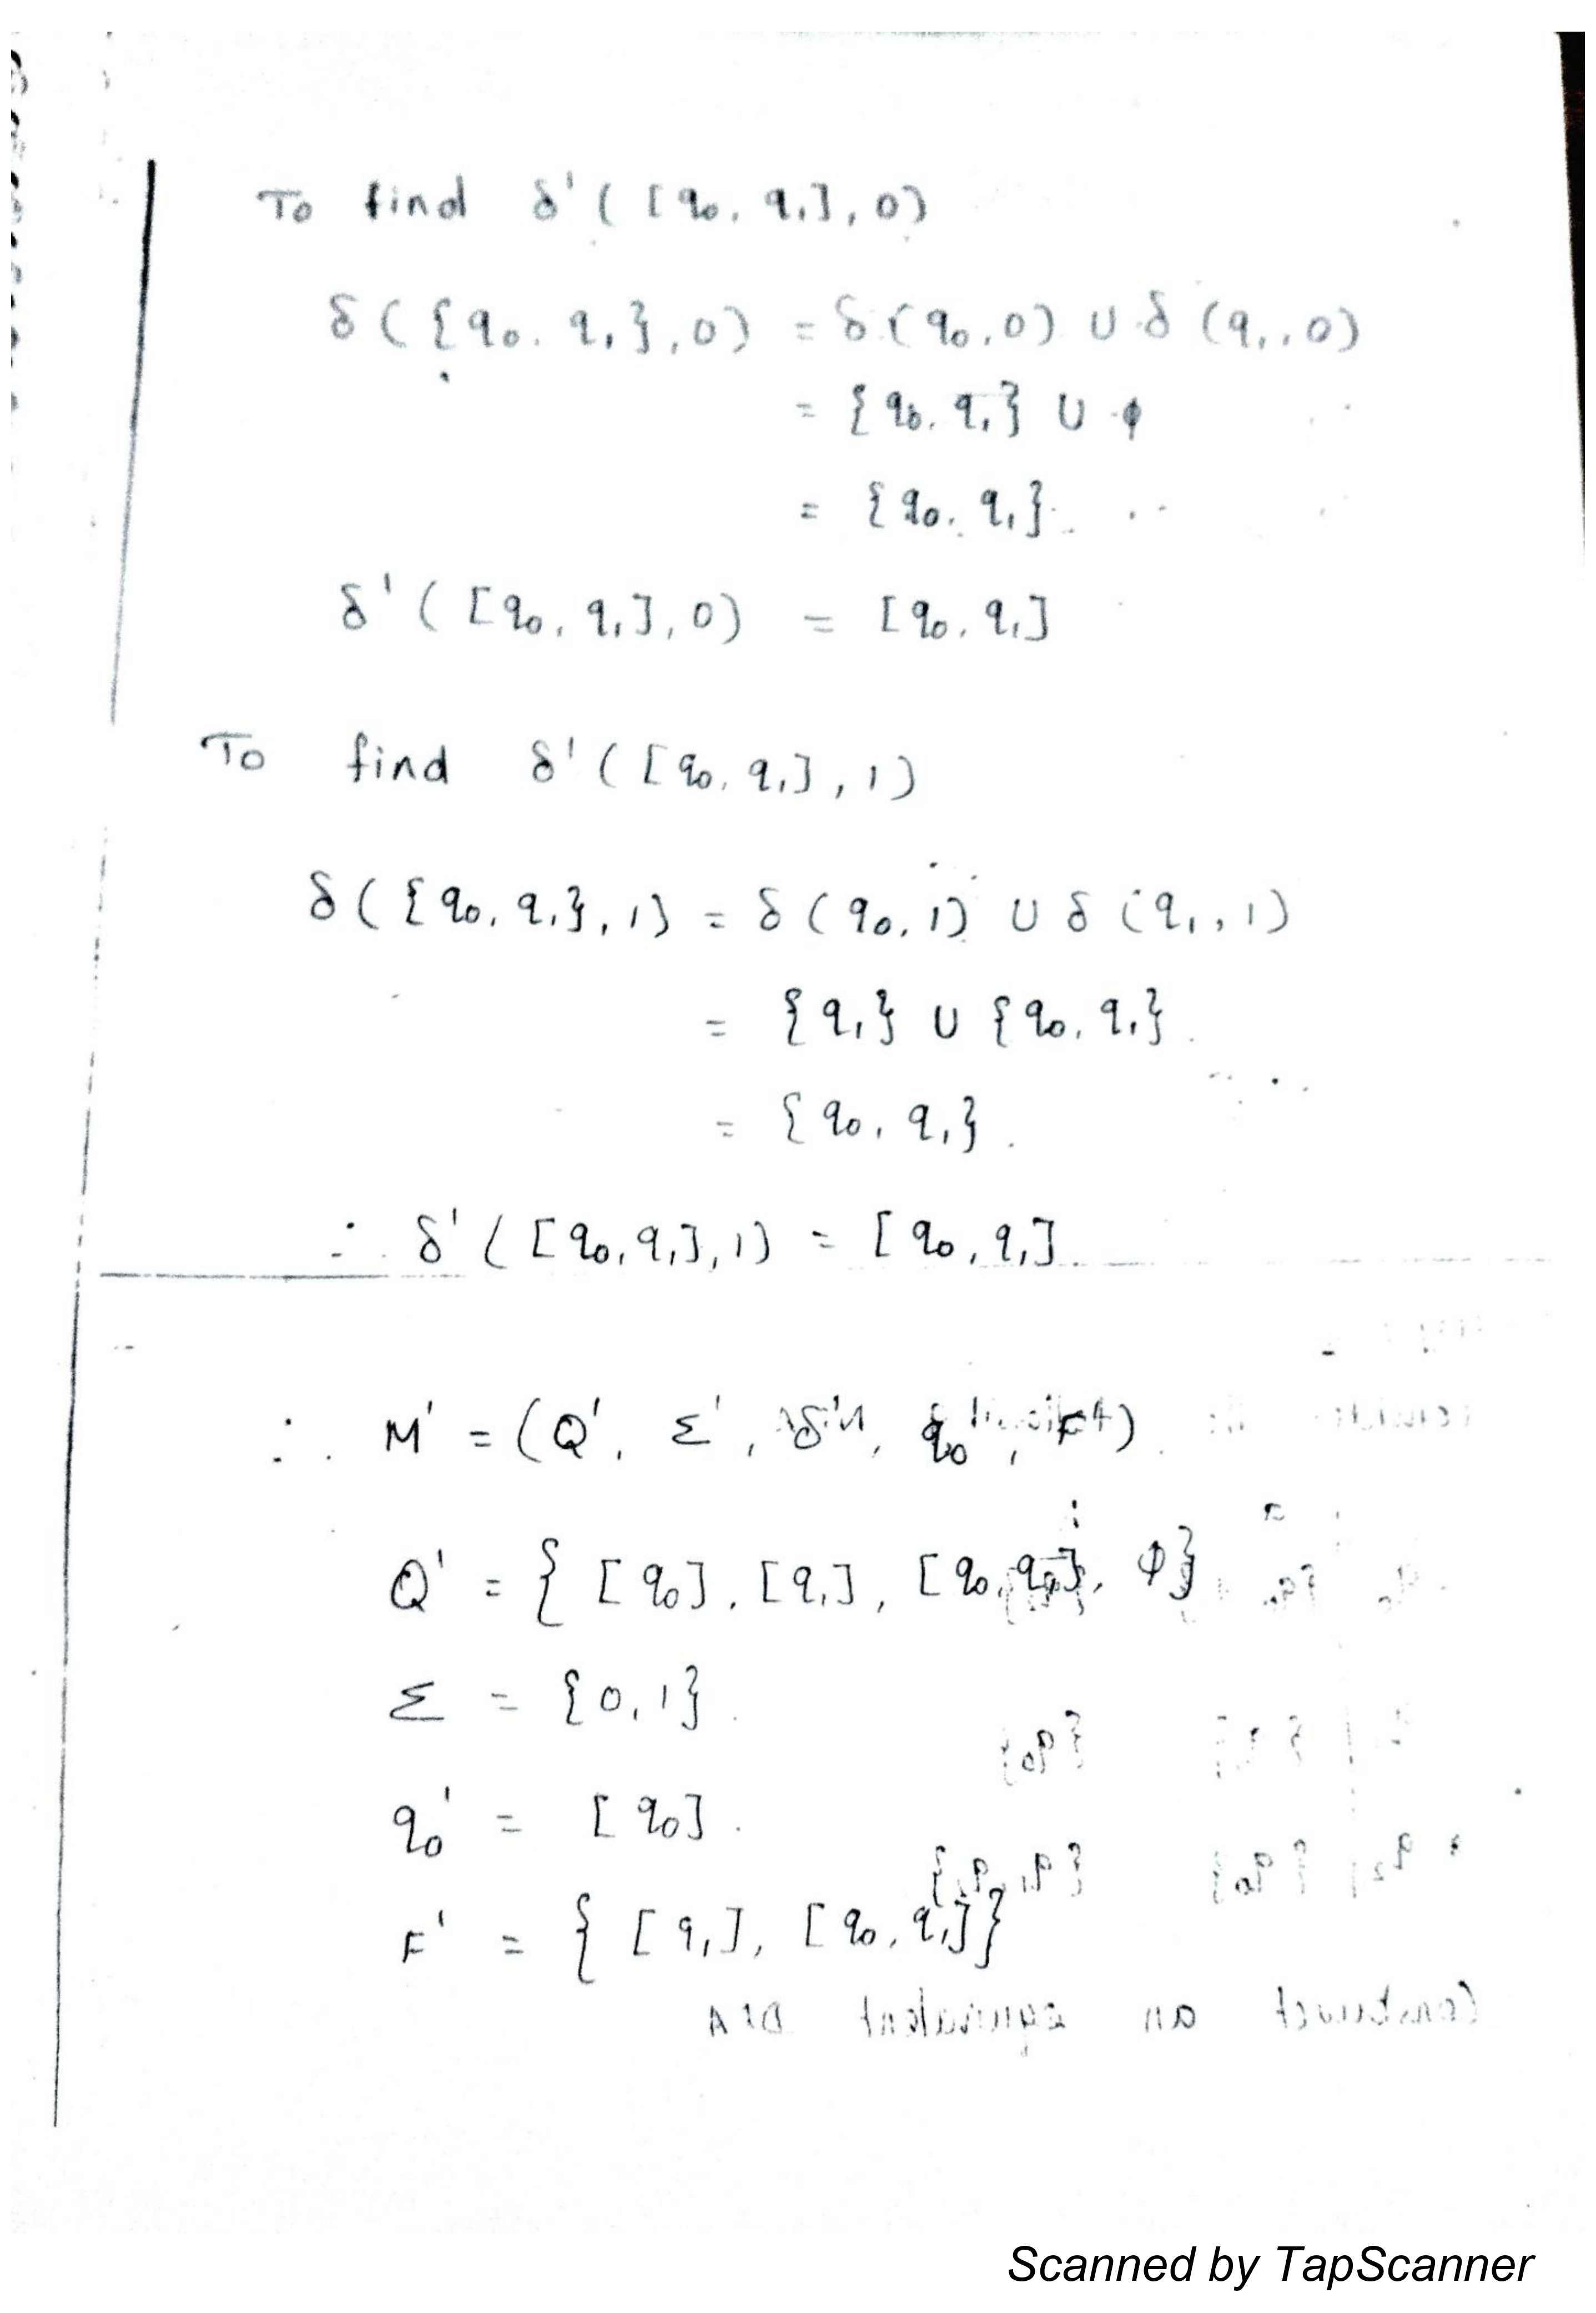 To find δ'([q₀, q₁], 0)
δ({q₀, q₁}, 0) = δ(q₀, 0) ∪ δ(q₁, 0)
= {q₀, q₁} ∪ ϕ
= {q₀, q₁}
δ'([q₀, q₁], 0) = [q₀, q₁]
To find δ'([q₀, q₁], 1)
δ({q₀, q₁}, 1) = δ(q₀, 1) ∪ δ(q₁, 1)
= {q₁} ∪ {q₀, q₁}
= {q₀, q₁}.
∴ δ'([q₀, q₁], 1) = [q₀, q₁]
∴ M' = (Q', Σ', δ', q₀', F')
Q' = {[q₀], [q₁], [q₀, q₁], ϕ}
Σ = {0, 1}
q₀' = [q₀].
F' = {[q₁], [q₀, q₁]}
Construct an equivalent DFA
Scanned by TapScanner